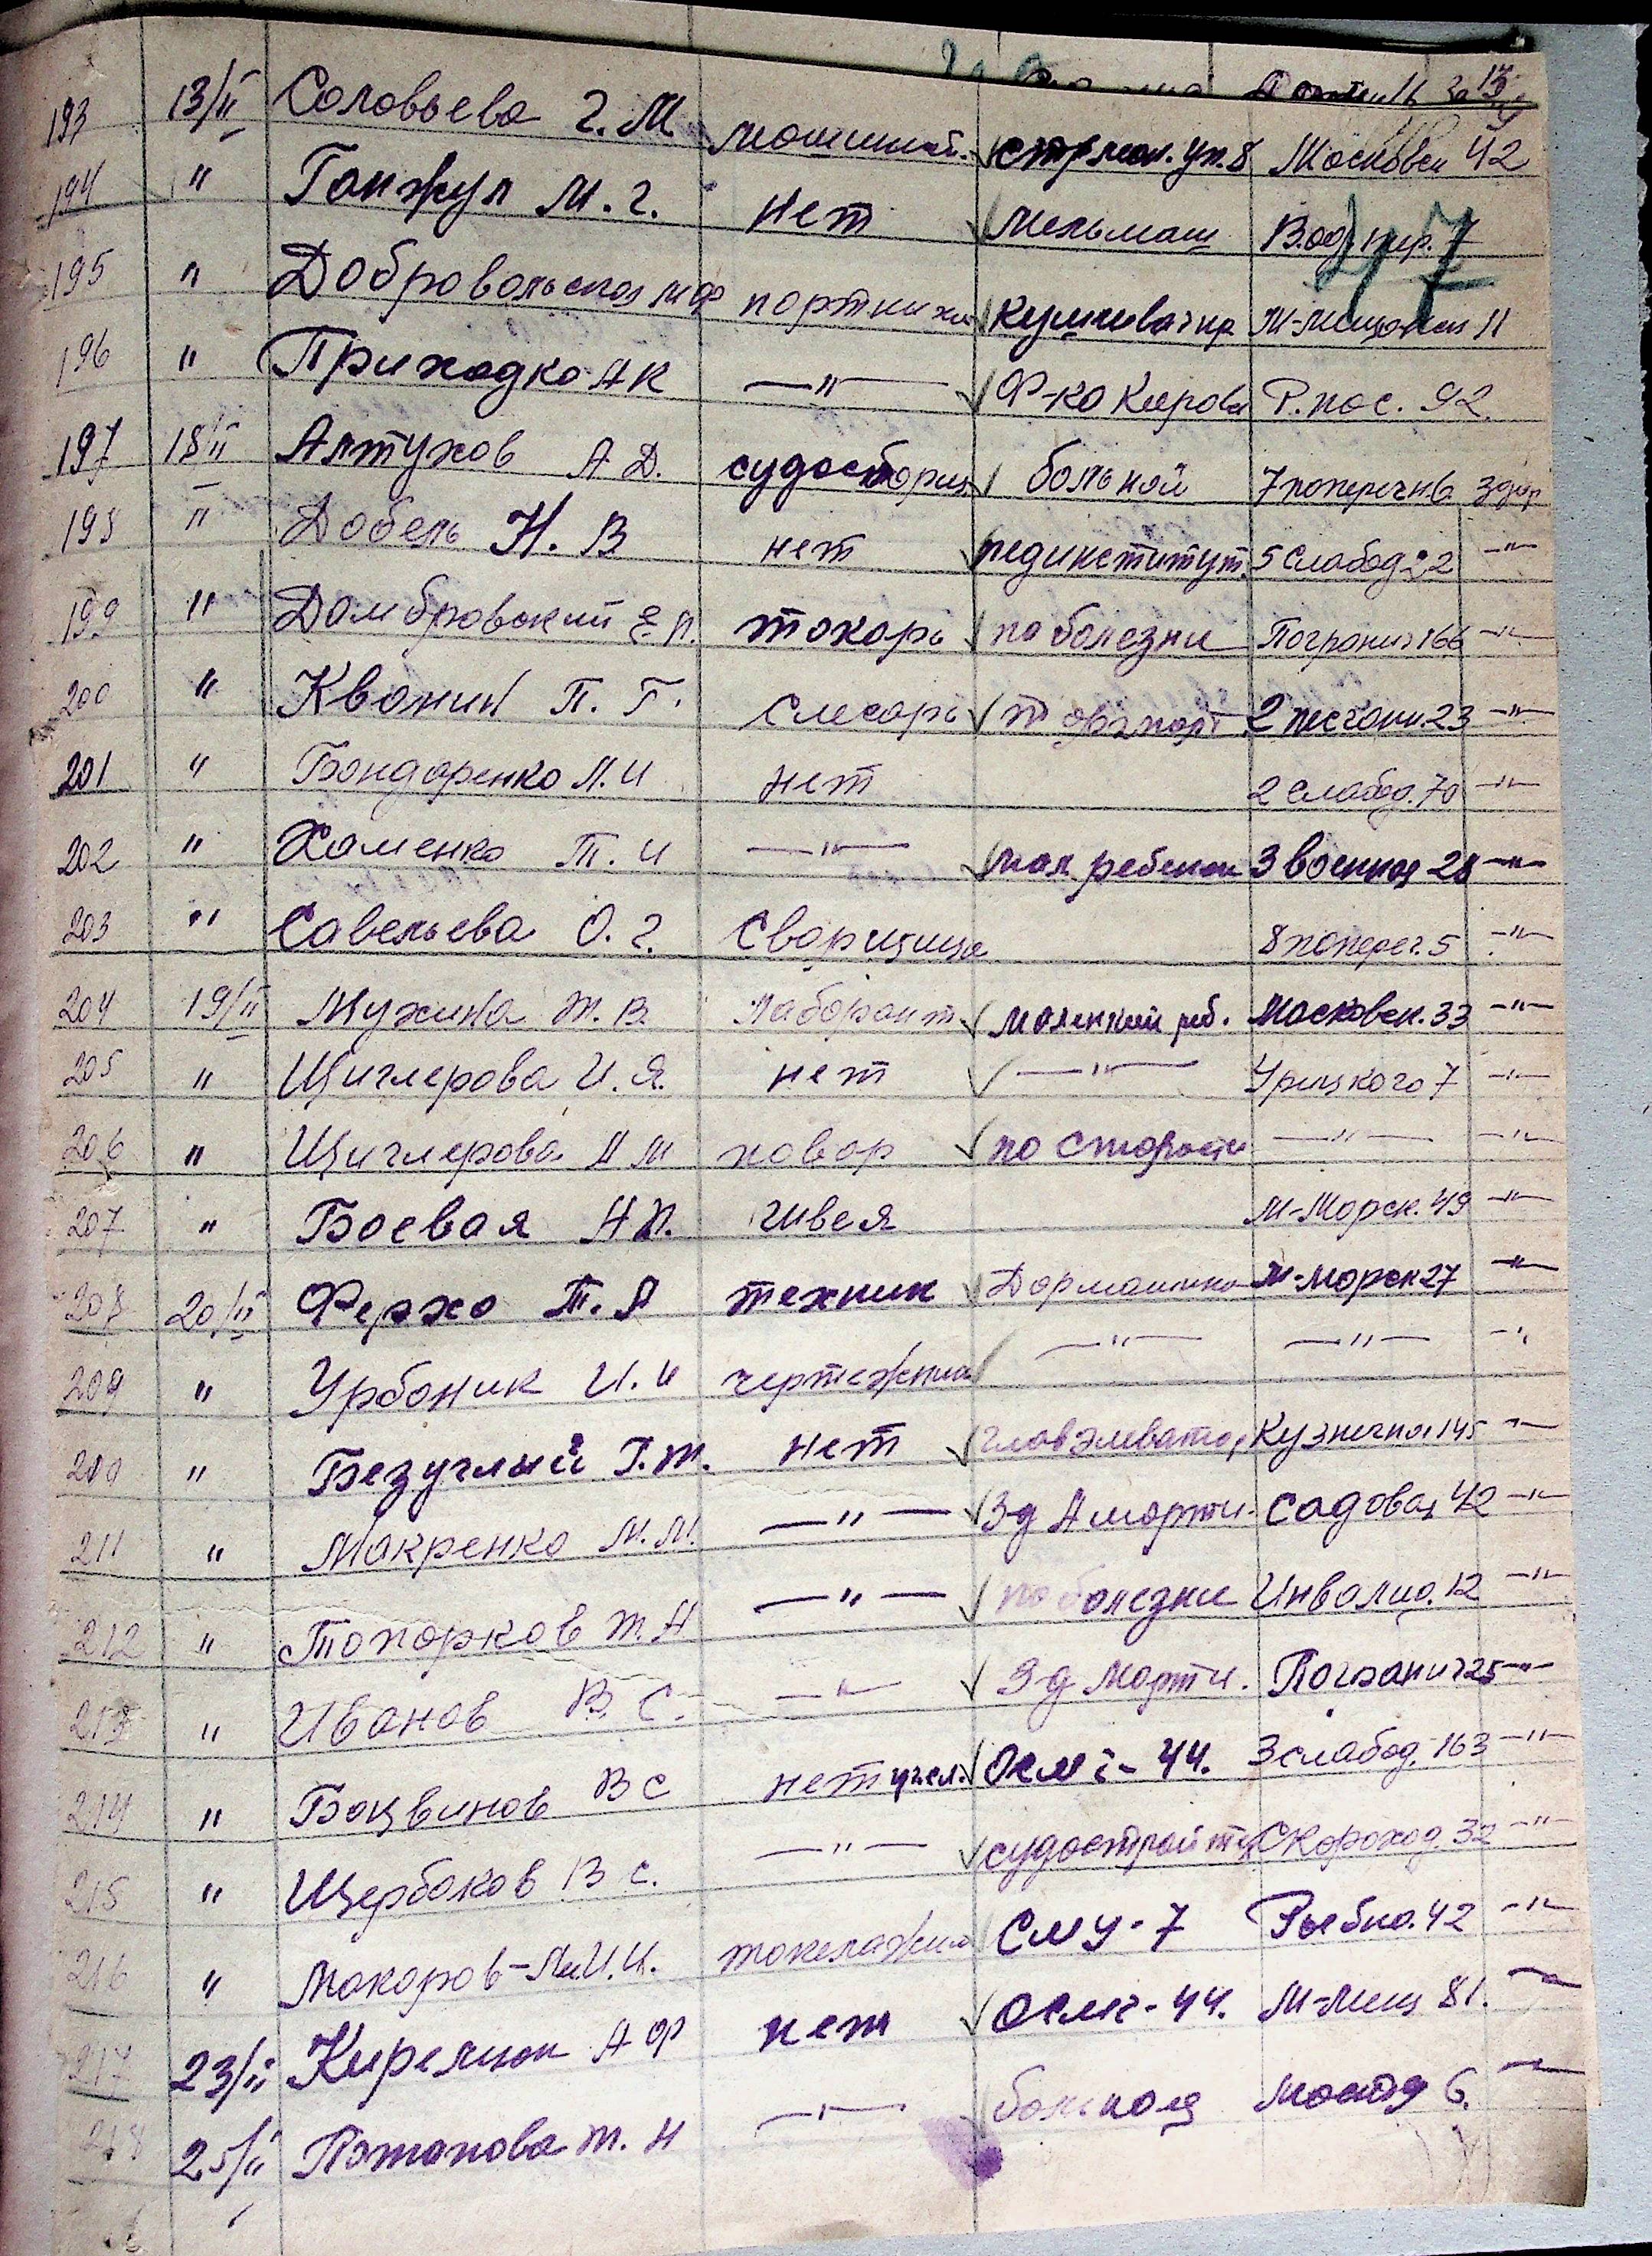 193 13/II Соловьева Г. М. машинист. стрмон. уп. 8 Московск 42
194 " Ганжул М. Г. нет Мельмаш В.од. пер. 7
47
195 " Добровольская М Ф портниха М-Мещанск 11
196 " Приходко А К —"— Ф-ка Кирова Р. пос. 92.
197 18/II Алтухов А Д. судосборщ больной 7 поперечн. 6 здор
198 " Добель Н. В нет пединститут. 5 Слабод 22 —"—
199 " Домбровский Е. П. токарь по болезни Погранич 166 —"—
200 " Кванин П. Г. Слесарь торгпорт 2 песчани. 23 —"—
201 " Бондаренко Л. И нет 2 Слабод. 70 —"—
202 " Хоменко Т. И —"— мал ребенок 3 военная 28 —"—
203 " Савельева О. Г. Сварщица 8 попереч. 5 —"—
204 19/II Мухина М. В. Лаборант. маленкий реб. Московск. 33 —"—
205 " Щиглерова И. Я. нет —"— Урицкого 7 —"—
206 " Щиглерова А М повар по старости —"— —"—
207 " Боевая А П. швея М-Морск. 49 —"—
208 20/II Ферхо Т. А техник Дормашина М-морск 27 —"—
209 " Урбаник И. И чертежник —"— —"— —"
210 " Безуглый Г. М. нет Главэлеватор Кузнечная 145 —"—
211 " Макренко М. М. —"— З-д А марти. Садовая 42 —"—
212 " Топорков М. Н —"— по болезни Инвалид. 12 —"—
213 " Иванов В. С. —"— З-д Марти. Погранич 25 —"—
214 " Боцвинов В С нет учсл. ОСМЧ-44. 3 слабод. 163 —"—
215 " Щербаков В С. —"— судостройтр Скороход. 32 —"—
216 " Макаров И. И. такелажни СМУ-7 Рыбно. 42 —"—
217 23/II А Ф нет ОСМЧ-44. М-Мещ 81. —"—
218 25/II Потапова М. Н —"— больная 6. —"—